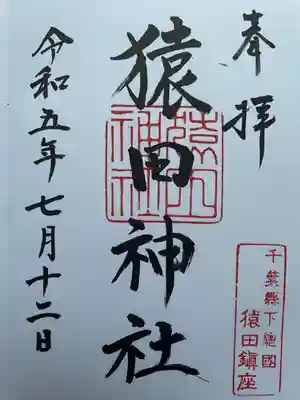 奉拝
猿田神社
令和五年七月十二日
千葉縣下總國
猿田鎮座